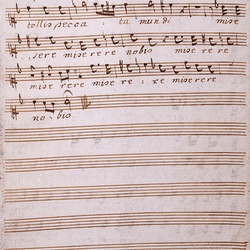 tollis pecca ta mundi mise
rere miserere nobis miserere
miserere misere re miserere
nobis